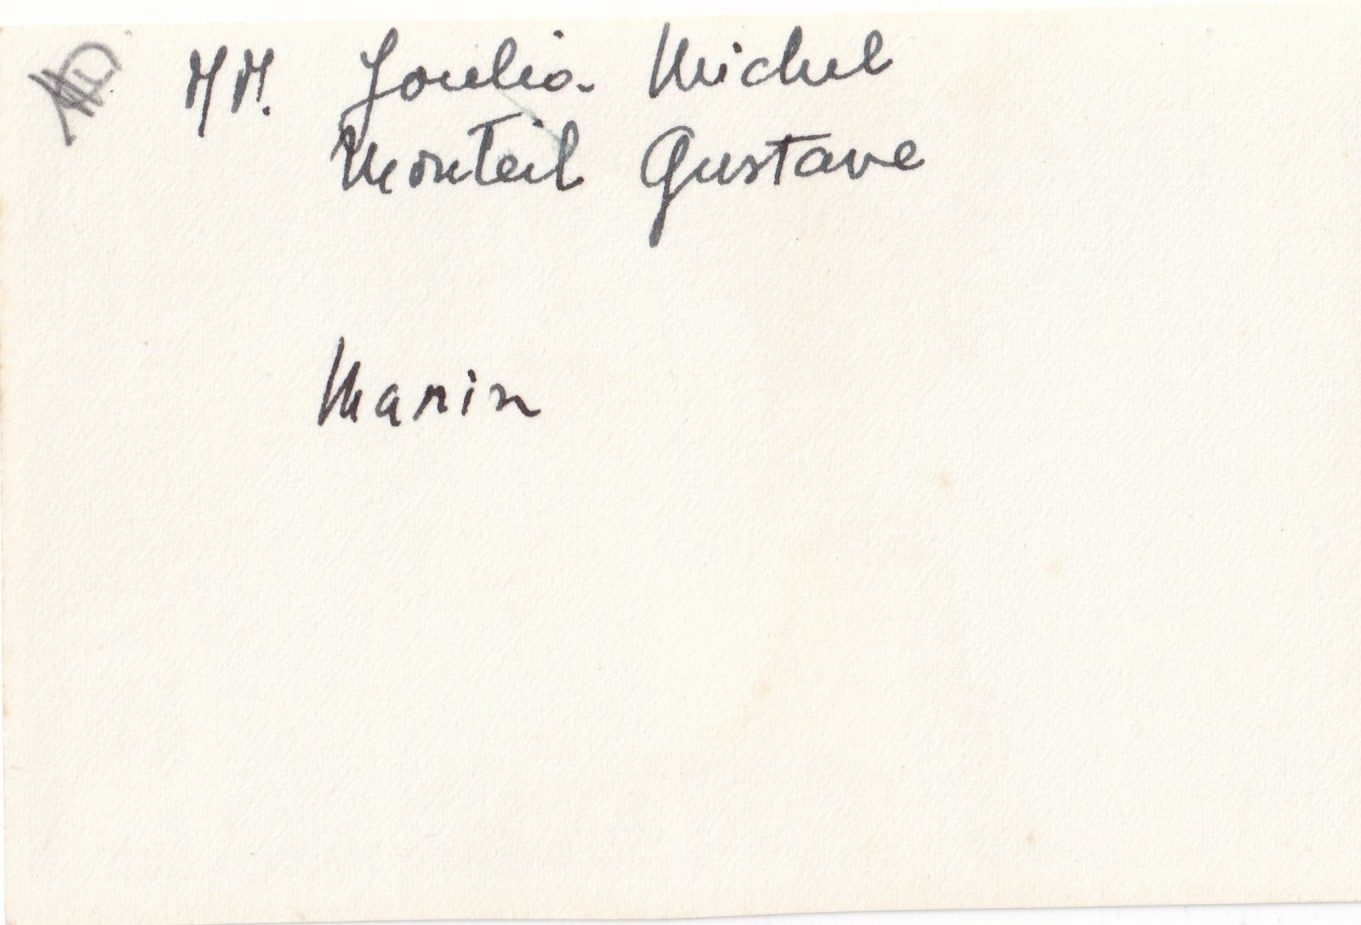 MM. Joulia Michel
Monteil Gustave
Marin